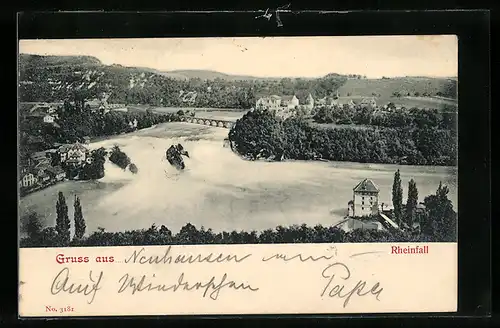 Gruss aus Neuhausen am Rheinfall
Auf Wiedersehen Papa
No. 3181